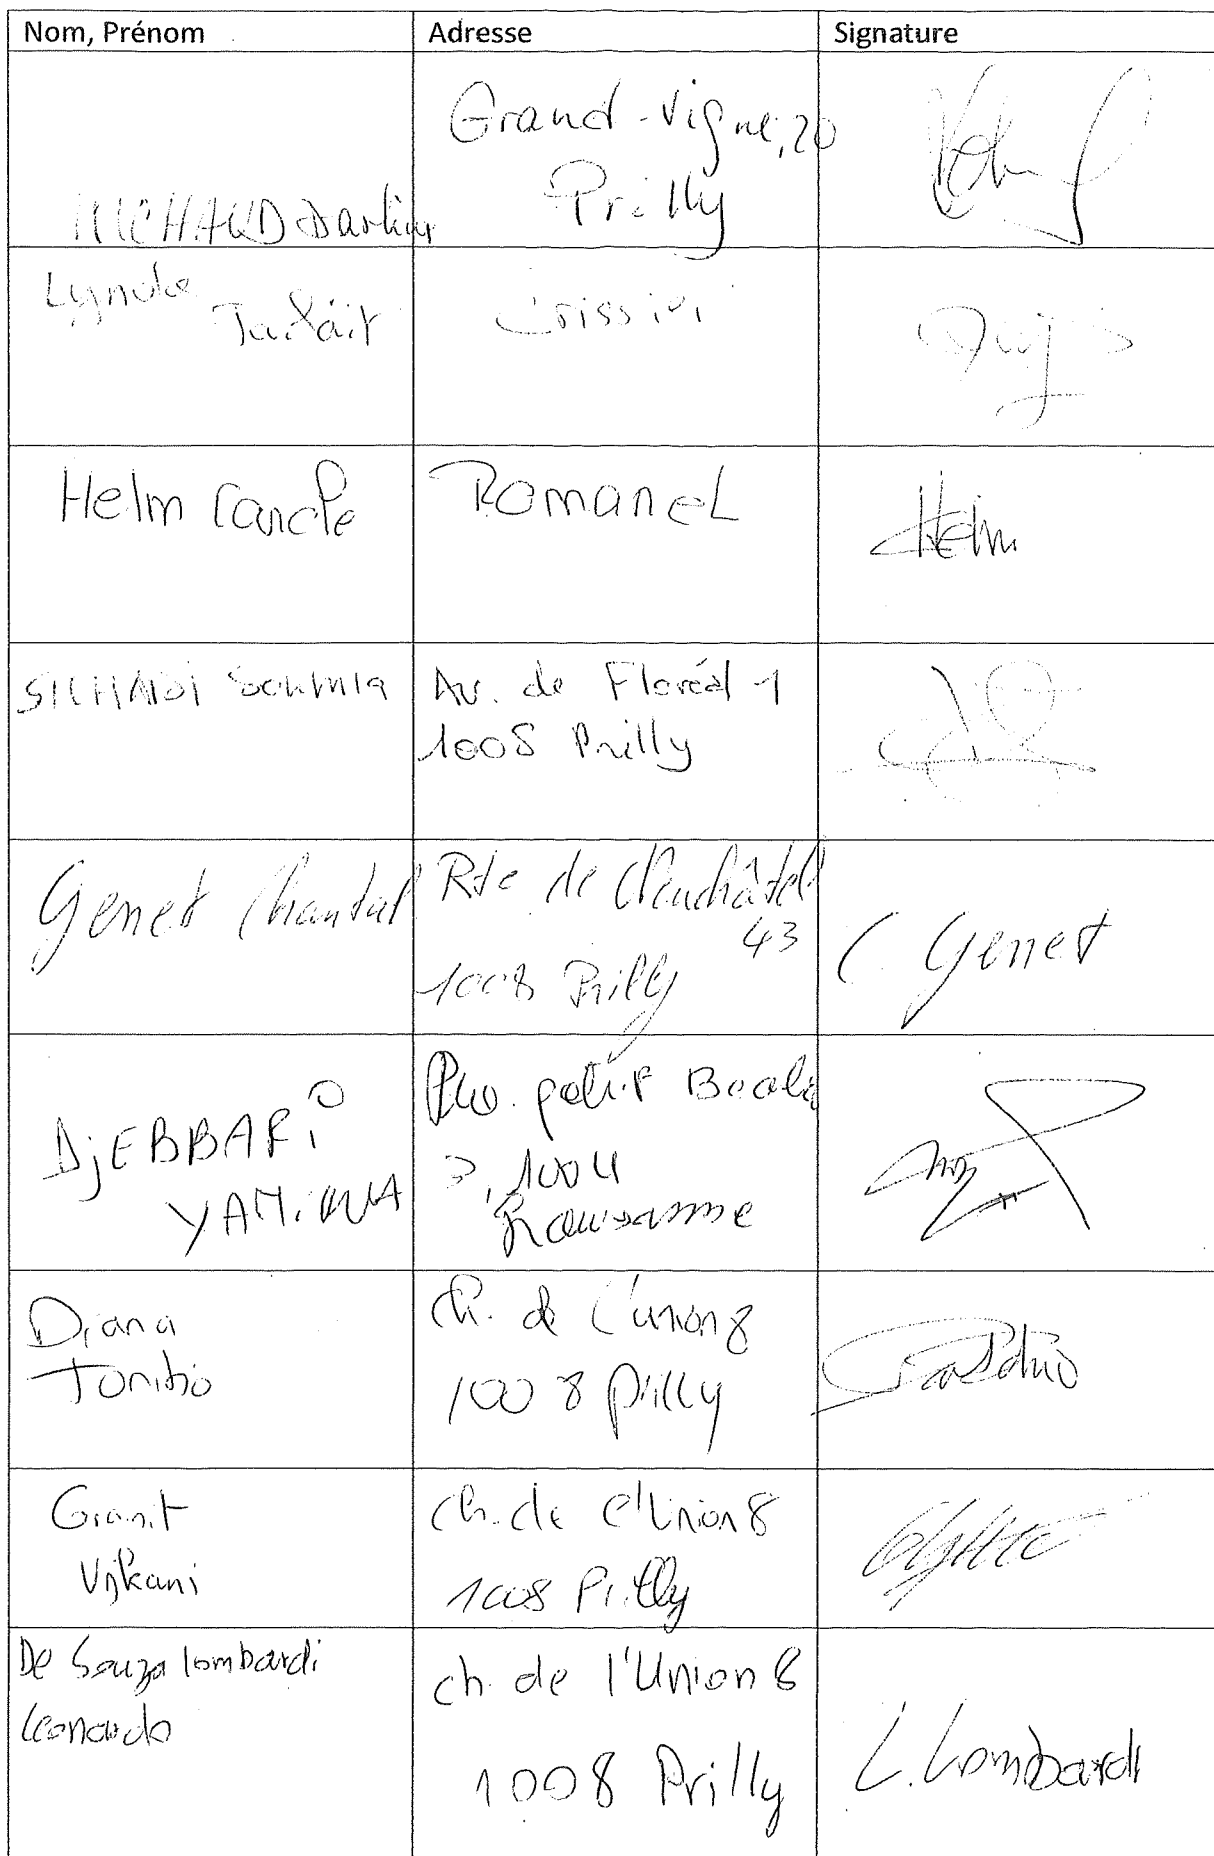 Nom, Prénom Adresse Signature
Grand-Vigne, 20
Prilly
MICHAUD
Lynda
Parfait
Crissier
Helm Carole Romanel Helm
Av. de Floréal 1
1008 Prilly
Genet Chantal Rte de Neuchâtel
43
1008 Prilly
C. Genet
DjEBBARi
YAMiNA
1004
Lausanne
Diana
Toribio
Ch. de l'union 8
1008 Prilly
Granit
Ch. de l'Union 8
1008 Prilly
De Souza lombardi
Leonardo
ch. de l'Union 8
1008 Prilly
L. Lombardi